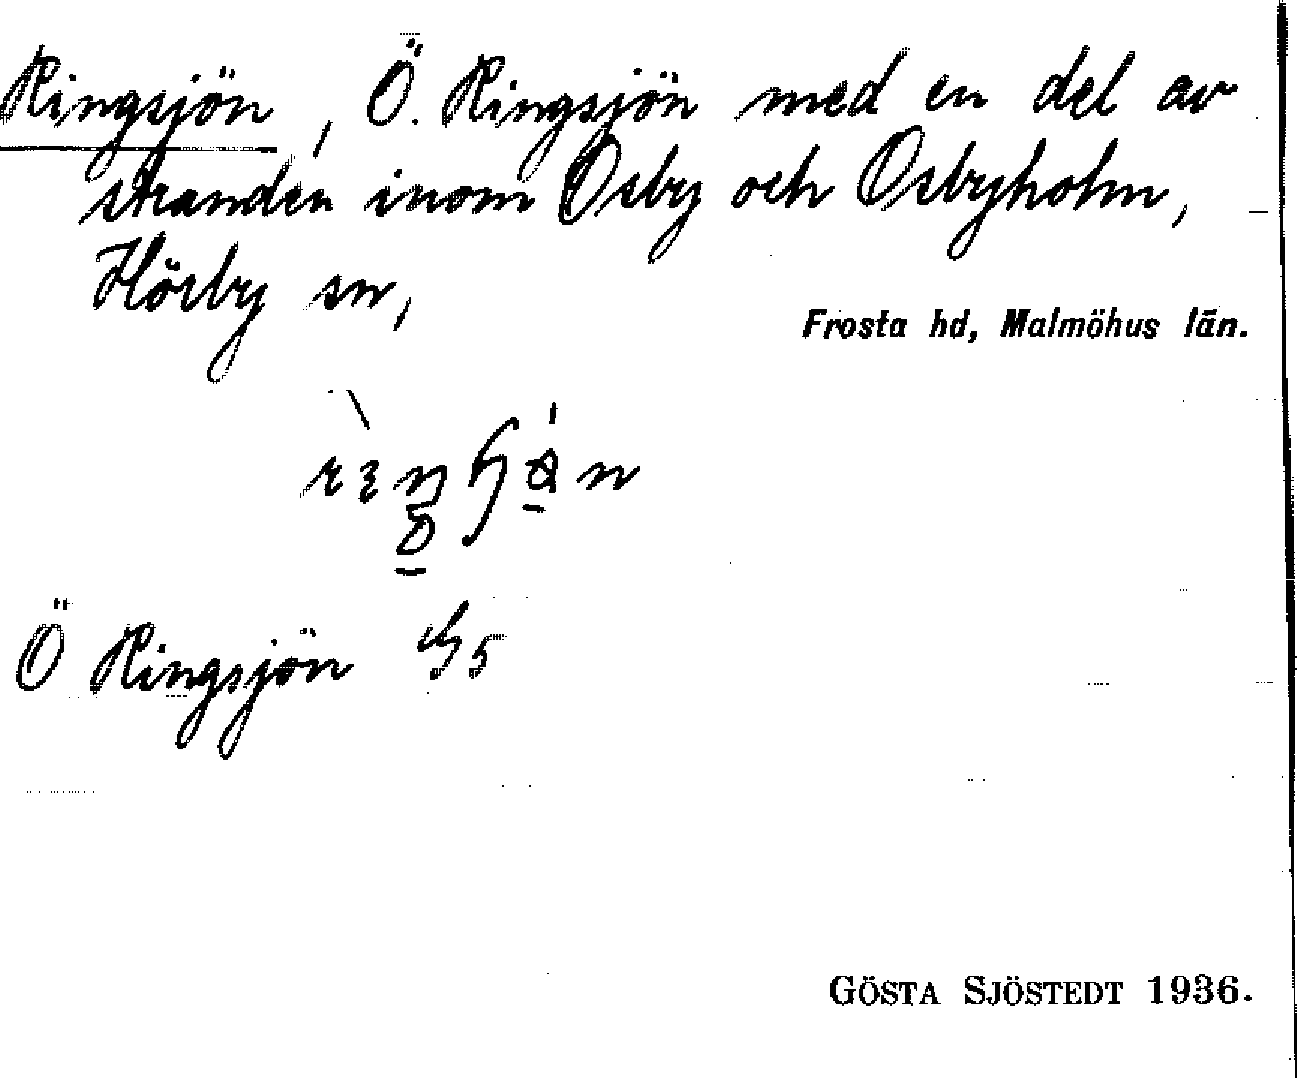 Ringsjön, Ö. Ringsjön med en del av
stranden inom Osby och Osbyholm,
Hörby sn,
Frosta hd, Malmöhus län.
Ö Ringsjön
GÖSTA SJÖSTEDT 1936.